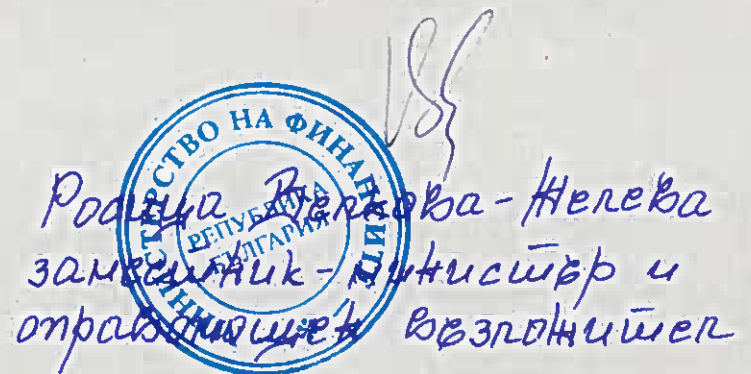 МИНИСТЕРСТВО НА ФИНАНСИТЕ
РЕПУБЛИКА
БЪЛГАРИЯ
Росица Велкова-Желева
заместник-министър и
оправомощен възложител